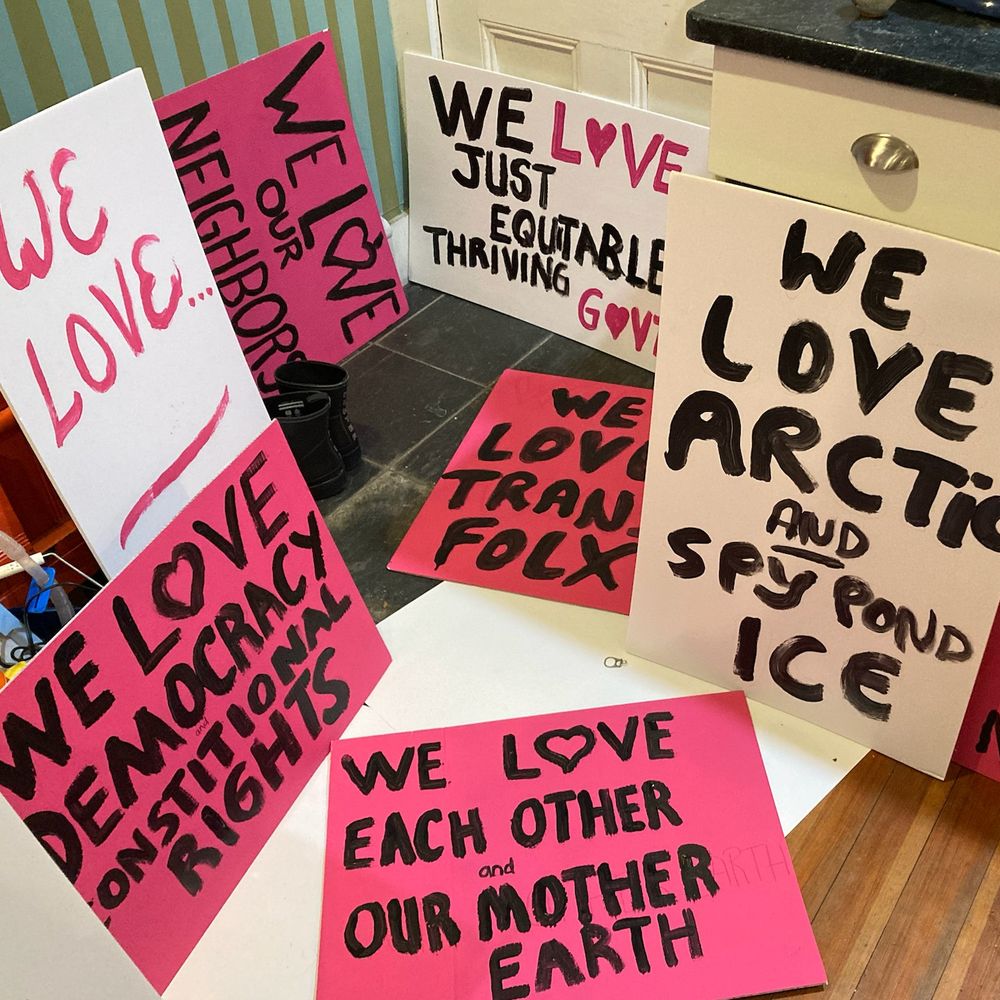 WE
LOVE...
WE LOVE
OUR
NEIGHBORS
WE LOVE
JUST
EQUITABLE
THRIVING
GOVT
WE
LOVE
TRANS
FOLX
WE
LOVE
ARCTIC
AND
SPY POND
ICE
WE LOVE
DEMOCRACY
and
CONSTITIONAL
RIGHTS
WE LOVE
EACH OTHER
and
OUR MOTHER
EARTH